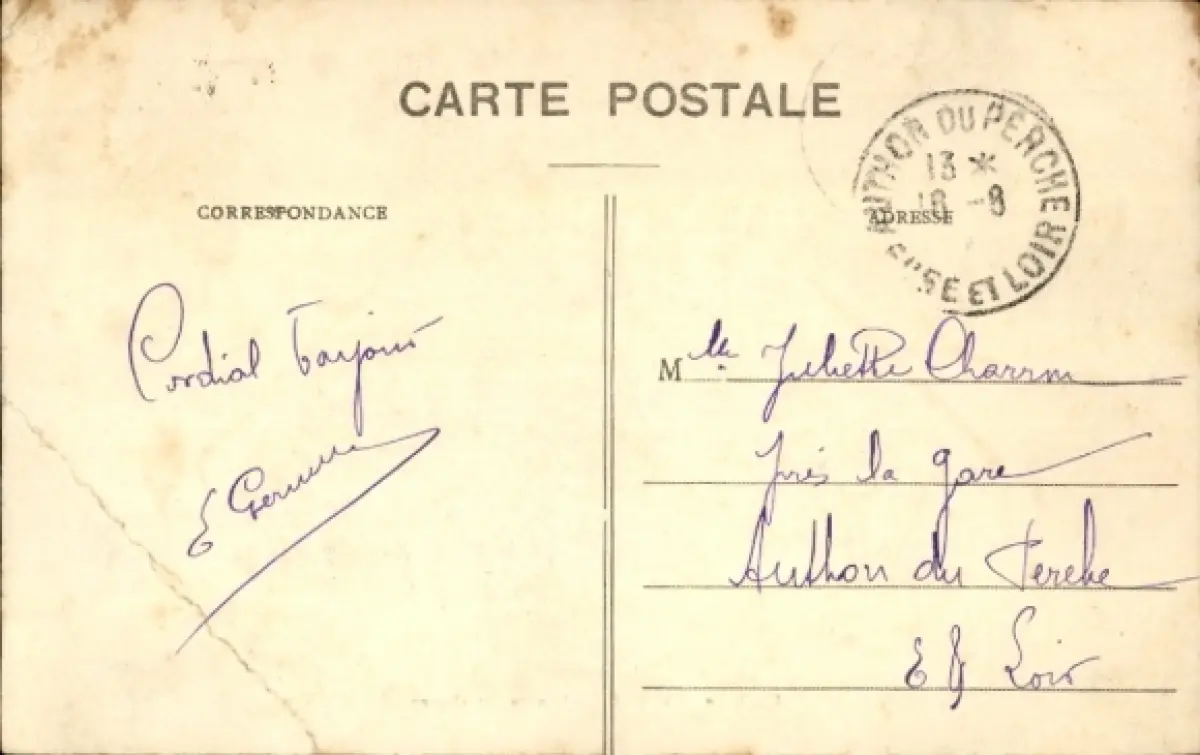 CARTE POSTALE
CORRESPONDANCE
ADRESSE
AUTHON DU PERCHE
13 *
18 -8
ET LOIR
Cordial
E
Mlle Juliette
près la gare
Authon du Perche
E & Loir